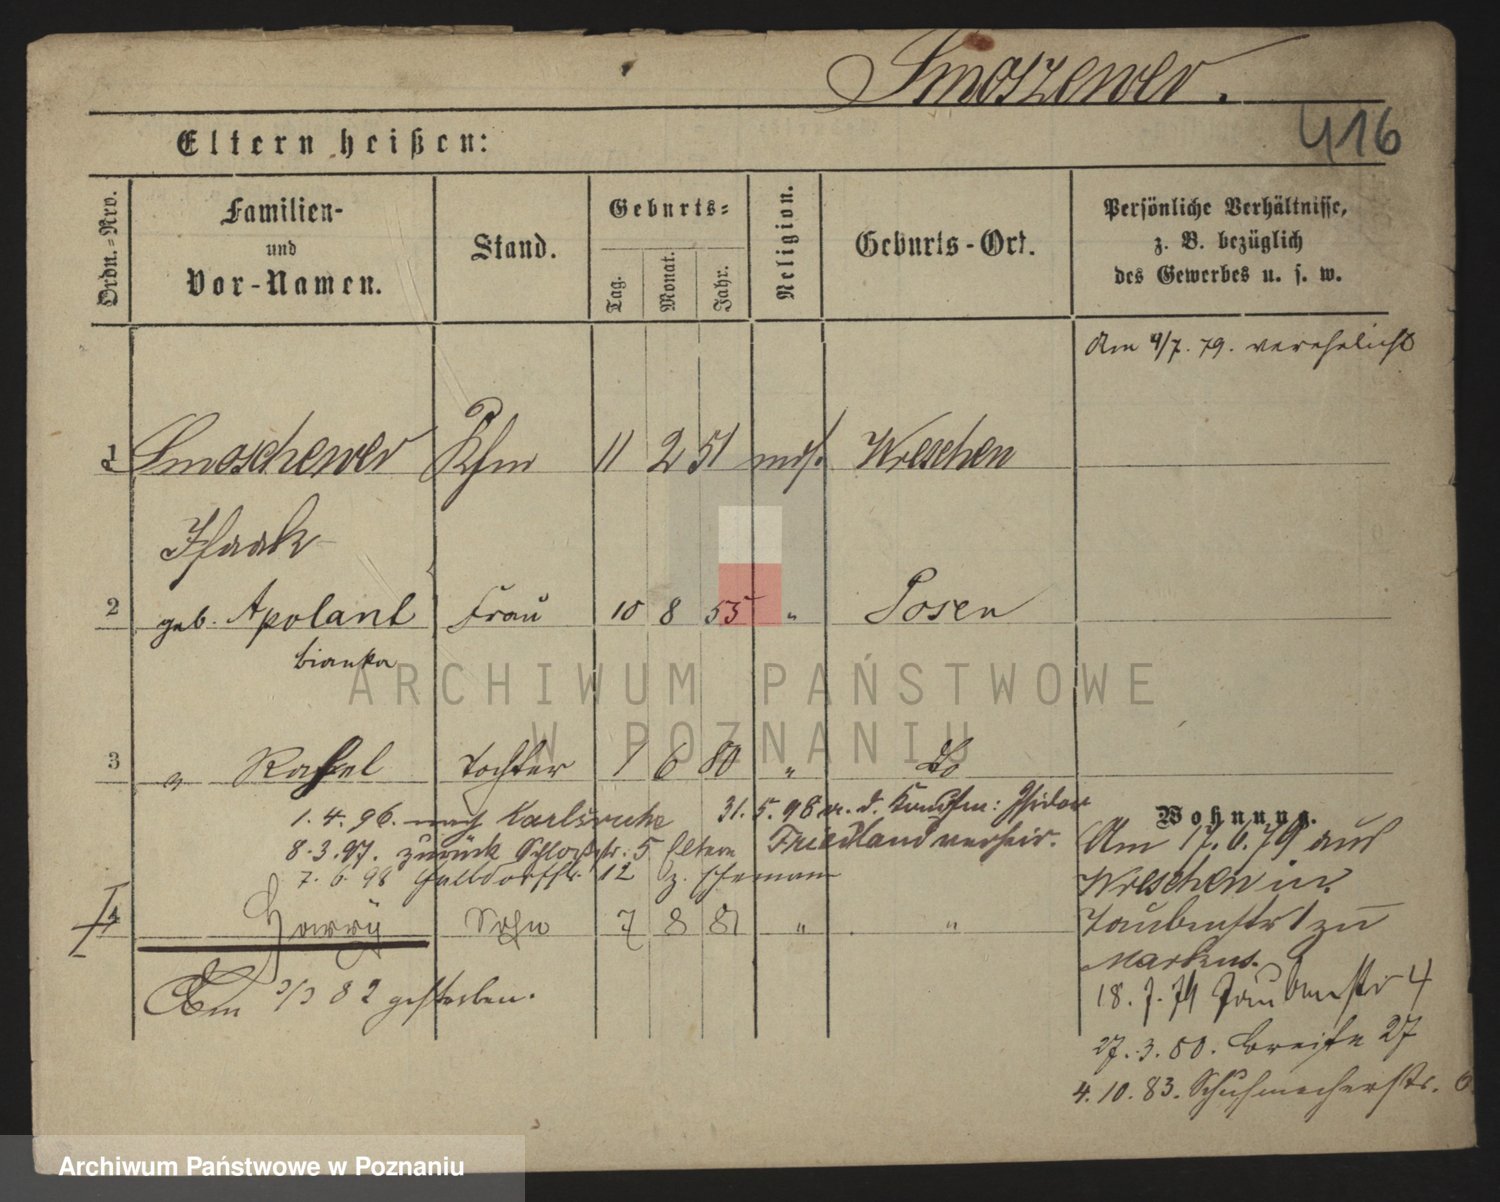 Smoszewer.
416
Eltern heißen:
Ordn.-Nro.
Familien-
und
Vor-Namen.
Stand.
Geburts-
Tag.
Monat.
Jahr.
Religion.
Geburts-Ort.
Persönliche Verhältnisse,
z. B. bezüglich
des Gewerbes u. s. w.
Am 4/7. 79. verehelicht
1 Smoschewer Kfm 11 2 51 mos. Wreschen
Isaak
2 geb. Apolant Frau 10 8 55 " Posen
Bianka
ARCHIWUM PAŃSTWOWE
W POZNANIU
3 " Rahel Tochter 1 6 80 " do
1. 4. 96. nach Karlsruhe
31. 5. 98 m. d. Kaufm: Isidor
8. 3. 97. zurück Schloßstr. 5 Eltern
Friedland verheir.
7. 6. 98 12 z. Ehemann
4 Harry Sohn 7 8 81 " "
Am 3/3 82 gestorben.
Wohnung.
Am 17. 6. 79 aus
Wreschen in
Taubenstr 1 zu
Markus.
18. 7. 79 Taubenstr 4
27. 3. 80. Breite 27
4. 10. 83. Schuhmacherstr. 6
Archiwum Państwowe w Poznaniu